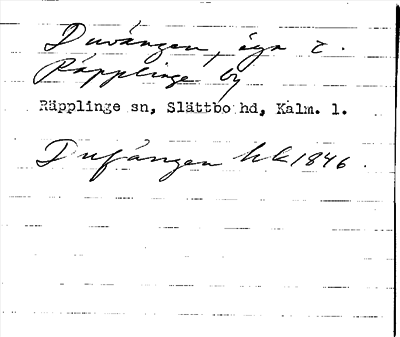 Duvängen, äga i
Räpplinge by
Räpplinge sn, Slättbo hd, Kalm. l.
Dufängen hk 1846.